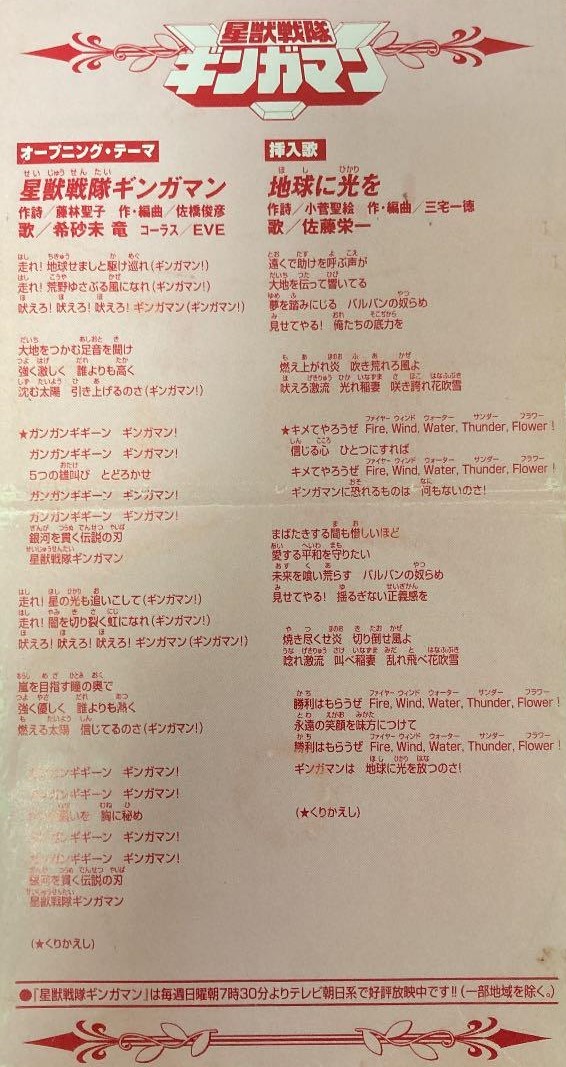 星獣戦隊
ギンガマン
オープニング・テーマ
星獣戦隊ギンガマン
作詩/藤林聖子 作・編曲/佐橋俊彦
歌/希砂未 竜 コーラス/EVE
走れ! 地球せましと駆け巡れ(ギンガマン!)
走れ! 荒野ゆさぶる風になれ(ギンガマン!)
吠えろ! 吠えろ! 吠えろ! ギンガマン(ギンガマン!)
大地をつかむ足音を聞け
強く激しく 誰よりも高く
沈む太陽 引き上げるのさ(ギンガマン!)
★ガンガンギギーン ギンガマン!
ガンガンギギーン ギンガマン!
5つの雄叫び とどろかせ
ガンガンギギーン ギンガマン!
ガンガンギギーン ギンガマン!
銀河を貫く伝説の刃
星獣戦隊ギンガマン
走れ! 星の光も追いこして(ギンガマン!)
走れ! 闇を切り裂く虹になれ(ギンガマン!)
吠えろ! 吠えろ! 吠えろ! ギンガマン(ギンガマン!)
嵐を目指す瞳の奥で
強く優しく 誰よりも熱く
燃えろ太陽 信じてるのさ(ギンガマン!)
ガンガンギギーン ギンガマン!
ガンガンギギーン ギンガマン!
いを 胸に秘め
ガンガンギギーン ギンガマン!
ガンガンギギーン ギンガマン!
銀河を貫く伝説の刃
星獣戦隊ギンガマン
(★くりかえし)
挿入歌
地球に光を
作詩/小菅聖絵 作・編曲/三宅一徳
歌/佐藤栄一
遠くで助けを呼ぶ声が
大地を伝って響いてる
夢を踏みにじる バルバンの奴らめ
見せてやる! 俺たちの底力を
燃え上がれ炎 吹き荒れろ風よ
吠えろ激流 光れ稲妻 咲き誇れ花吹雪
★キメてやろうぜ Fire, Wind, Water, Thunder, Flower!
信じる心 ひとつにすれば
キメてやろうぜ Fire, Wind, Water, Thunder, Flower!
ギンガマンに恐れるものは 何もないのさ!
まばたきする間も惜しいほど
愛する平和を守りたい
未来を喰い荒らす バルバンの奴らめ
見せてやる! 揺るぎない正義感を
焼き尽くせ炎 切り倒せ風よ
唸れ激流 叫べ稲妻 乱れ飛べ花吹雪
勝利はもらうぜ Fire, Wind, Water, Thunder, Flower!
永遠の笑顔を味方につけて
勝利はもらうぜ Fire, Wind, Water, Thunder, Flower!
ギンガマンは 地球に光を放つのさ!
(★くりかえし)
●『星獣戦隊ギンガマン』は毎週日曜朝7時30分よりテレビ朝日系で好評放映中です!!(一部地域を除く。)